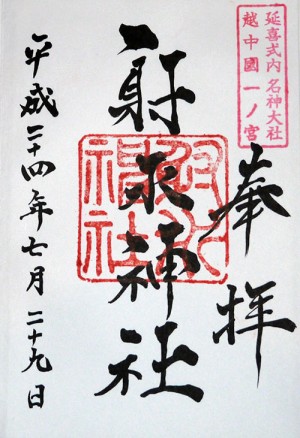 延喜式内 名神大社
越中國一ノ宮
奉拝
射水神社
射水
神社
平成二十四年七月二十九日